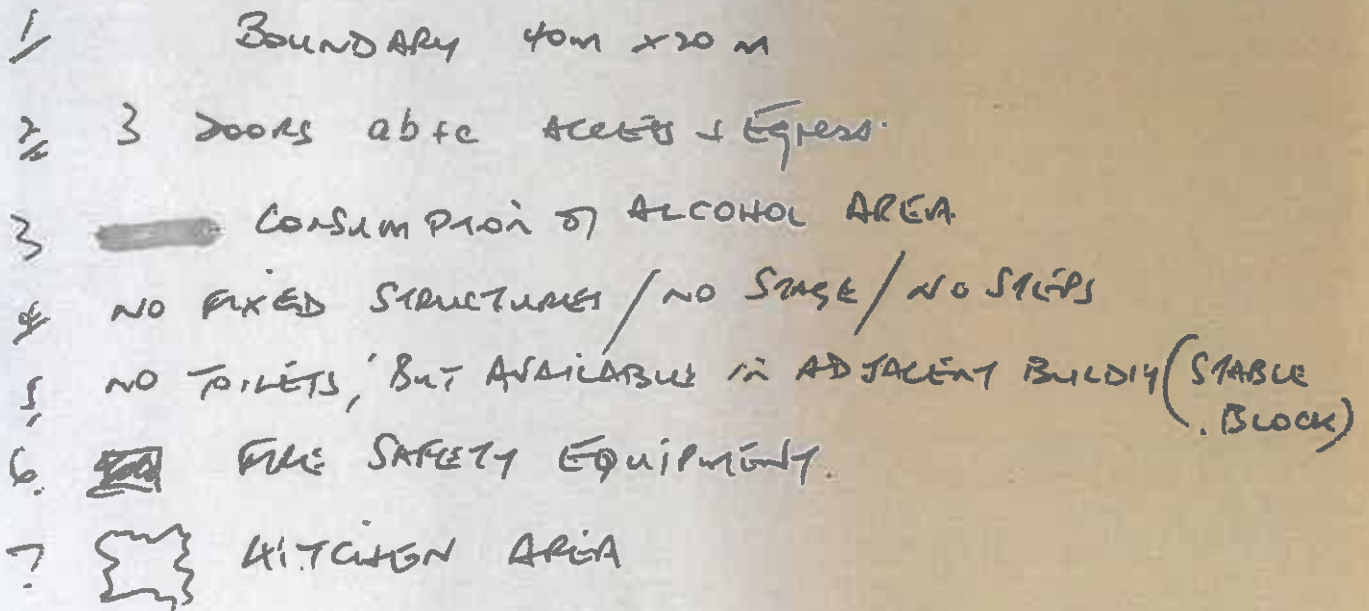 1/ BOUNDARY 40m x 20 m
2 3 DOORS a b + c ACCESS + Egress.
3 CONSUMPTION OF ALCOHOL AREA
4 NO FIXED STRUCTURES / NO STAGE / NO STEPS
5, NO TOILETS, BUT AVAILABLE in ADJACENT BUILDIG (STABLE
BLOCK)
6. FIRE SAFETY EQUIPMENT.
7 KITCHEN AREA